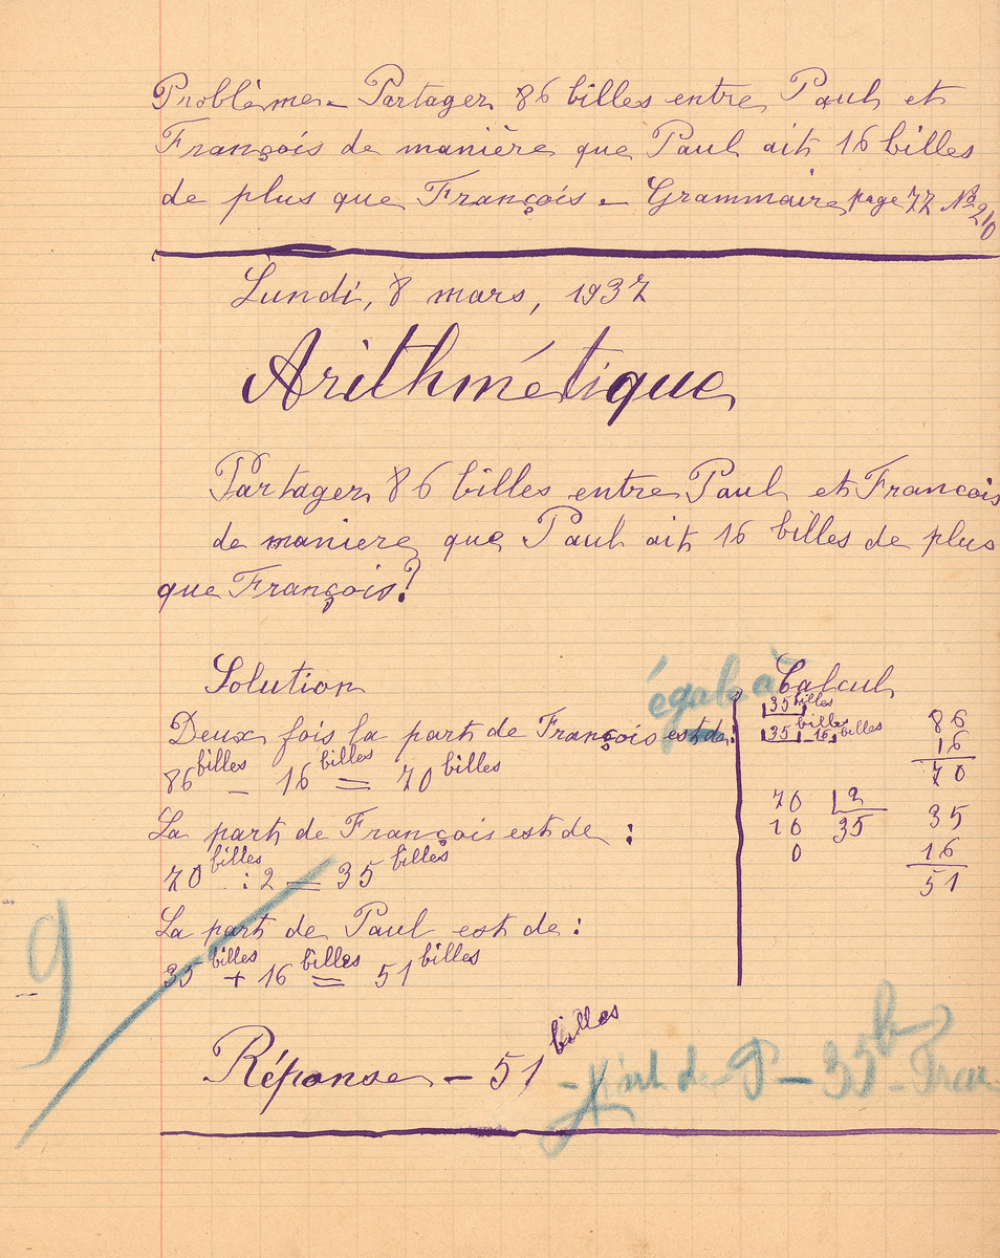 Problème - Partager 86 billes entre Paul et
François de manière que Paul ait 16 billes
de plus que François. - Grammaire page 77 No 210
Lundi, 8 mars, 1937
Arithmétique
Partager 86 billes entre Paul et Francois
de maniere que Paul ait 16 billes de plus
que François?
Solution
égale à
Deux fois la part de François est de:
86 billes - 16 billes = 70 billes
La part de François est de :
70 billes : 2 = 35 billes
La part de Paul est de :
35 billes + 16 billes = 51 billes
Calcul
35 billes
35 billes 16 billes
86
16
70
70 2
10 35
0
35
16
51
9
Réponse - 51 billes
- part de P - 35 b - Fran